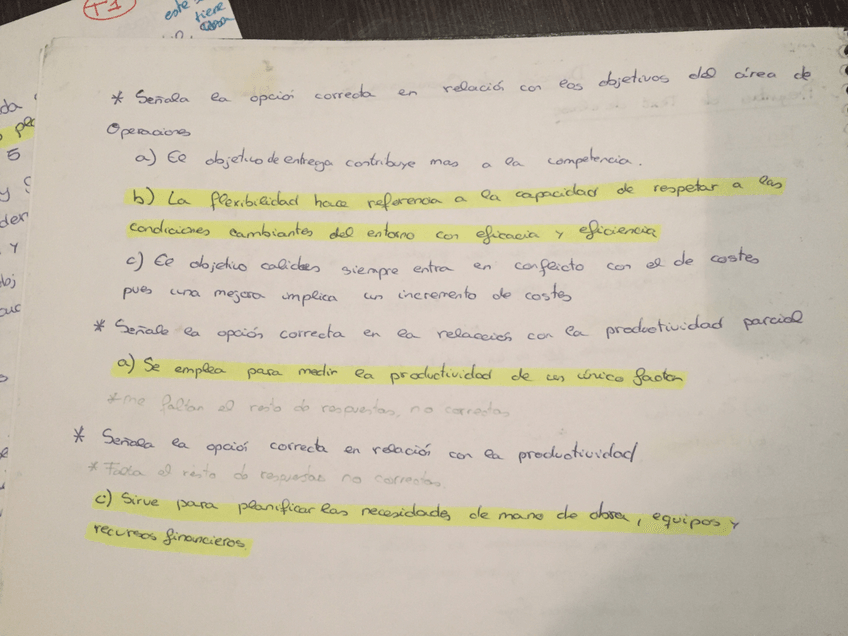 T1
este
tiene
* Señala la opción correcta en relación con los objetivos del área de
Operaciones
a) El objetivo de entrega contribuye mas a la competencia.
b) La flexibilidad hace referencia a la capacidad de respetar a las
condiciones cambiantes del entorno con eficacia y eficiencia
c) El objetivo calidad siempre entra en conflicto con el de costes
pues una mejora implica un incremento de costes
* Señale la opción correcta en la relacción con la productividad parcial
a) Se emplea para medir la productividad de un único factor
*me faltan el resto de respuestas, no correctas
* Señala la opción correcta en relación con la productividad
* Falta el resto de respuestas no correctas.
c) Sirve para planificar las necesidades de mano de obra, equipos y
recursos financieros.